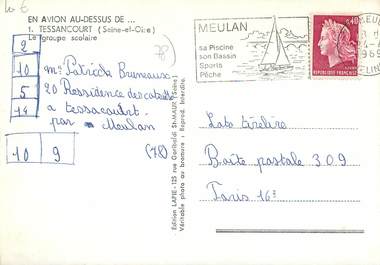 10 €
EN AVION AU-DESSUS DE ...
1. TESSANCOURT (Seine-et-Oise)
Le groupe scolaire
78
2
10
5
14
10 9
mr Patrick Bruneaux
20 Ressidence des
a tessacourt
par Meulan
(78)
Edition LAPIE - 125 rue Garibaldi St-MAUR (Seine)
Véritable photo au bromure - Reprod. Interdite.
MEULAN
sa Piscine
son Bassin
Sports
Pêche
0,40
REPUBLIQUE FRANÇAISE
1969
Loto tirelire
Boite postale 309
Paris 16e